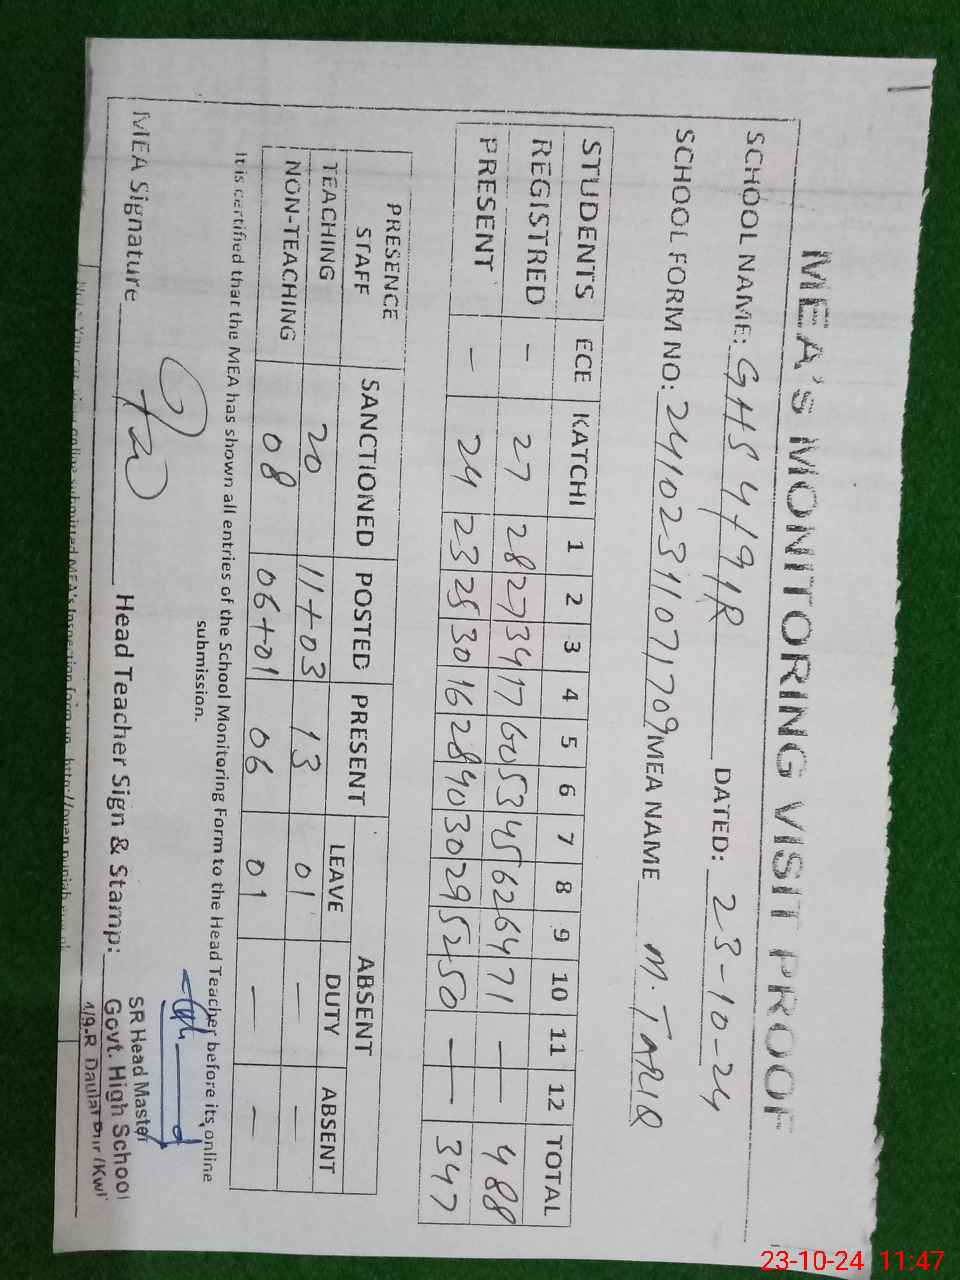 MEA'S MONITORING VISIT PROOF
SCHOOL NAME: GHS 4/91R DATED: 23-10-24
SCHOOL FORM NO: 24102311071709 MEA NAME M. TARIQ
STUDENTS ECE KATCHI 1 2 3 4 5 6 7 8 9 10 11 12 TOTAL
REGISTRED - 27 28 27 34 17 60 53 45 62 64 71 — — 488
PRESENT - 24 23 25 30 16 28 40 30 29 52 50 — — 347
PRESENCE STAFF SANCTIONED POSTED PRESENT ABSENT
LEAVE DUTY ABSENT
TEACHING 20 11+03 13 01 — —
NON-TEACHING 08 06+01 06 01 — —
It is certified that the MEA has shown all entries of the School Monitoring Form to the Head Teacher before its online
submission.
MEA Signature Head Teacher Sign & Stamp:
SR Head Master
Govt. High School
23-10-24 11:47